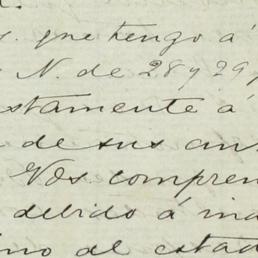 s. que tengo á
N. de 28 y 29,
stamente á
de sus an
Vos compren
debido á ina
ino al estad